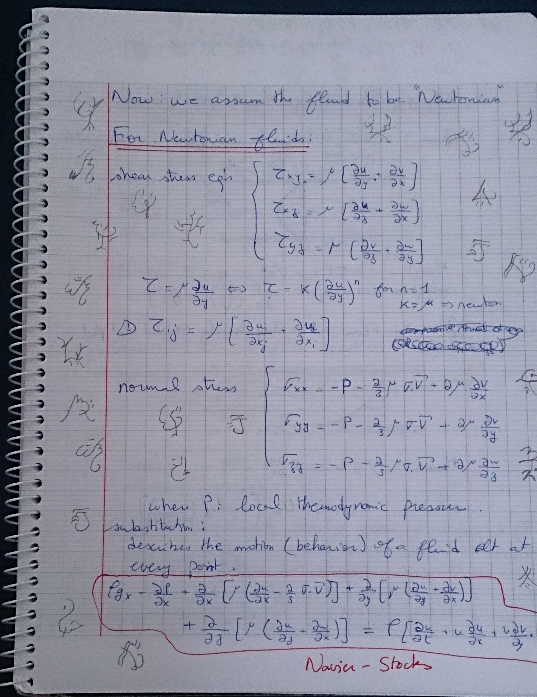 Now: we assum the fluid to be "Newtonian"
For Newtonian fluids:
shear stress eqs
τxy = μ [∂u/∂y + ∂v/∂x]
τxz = μ [∂u/∂z + ∂w/∂x]
τyz = μ [∂v/∂z + ∂w/∂y]
τ = μ ∂u/∂y ⇔ τ = K(∂u/∂y)^n for n=1
K=μ ⇒ newton
τij = μ [∂ui/∂xj + ∂uj/∂xi]
normal stress
σxx = -P - 2/3 μ ∇.V + 2μ ∂u/∂x
σyy = -P - 2/3 μ ∇.V + 2μ ∂v/∂y
σzz = -P - 2/3 μ ∇.V + 2μ ∂w/∂z
when P: local themodynamic pressure.
substitution:
describes the motion (behavior) of a fluid elt at
every point.
ρgx - ∂P/∂x + ∂/∂x [μ(∂u/∂x - 2/3 ∇.V)] + ∂/∂y [μ(∂u/∂y + ∂v/∂x)]
+ ∂/∂z [μ(∂u/∂z + ∂w/∂x)] = ρ[∂u/∂t + u ∂u/∂x + v ∂v/∂y
Navier - Stocks